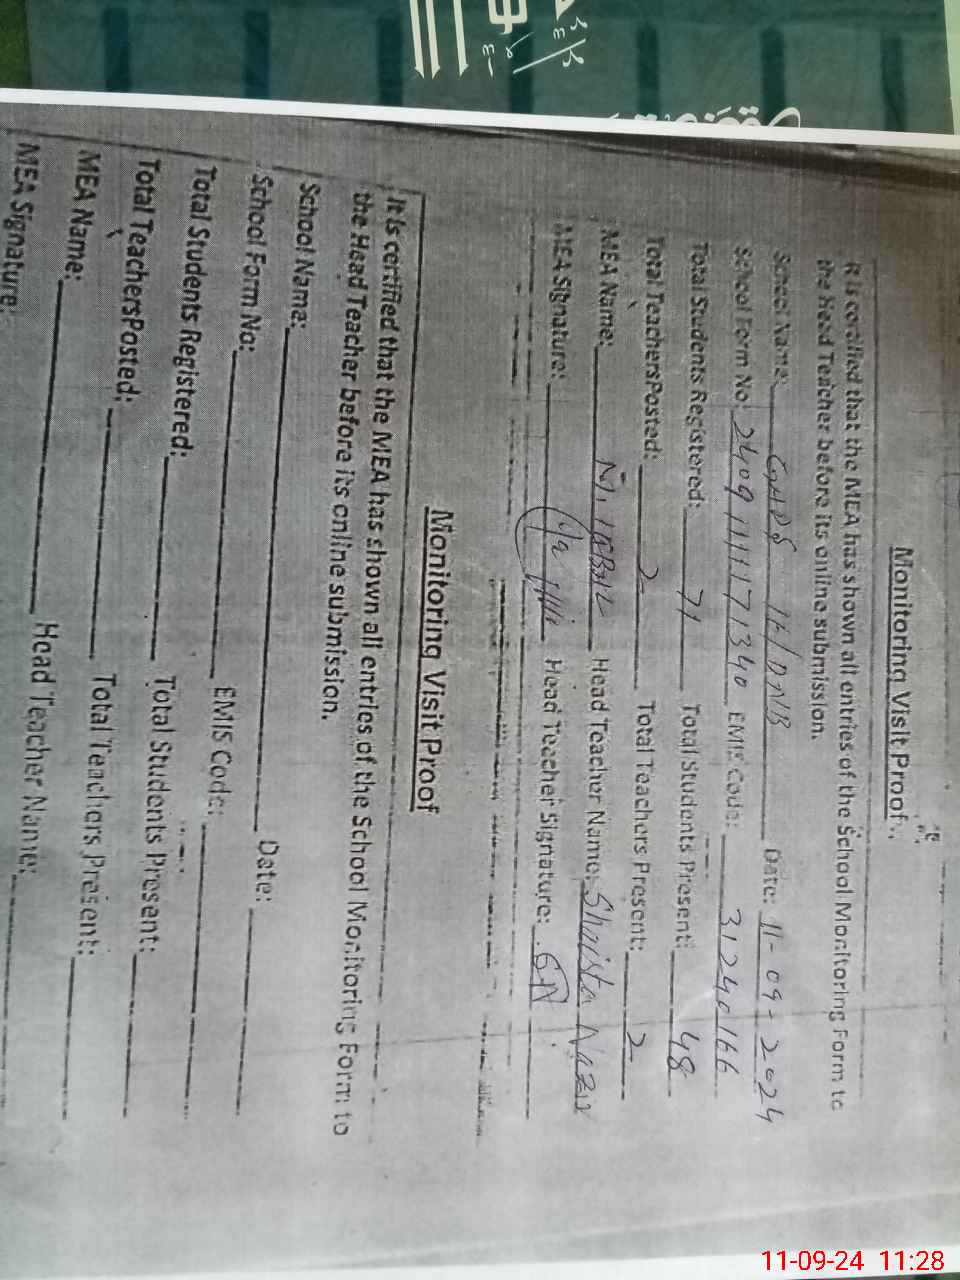 Monitoring Visit Proof
It is certified that the MEA has shown all entries of the School Monitoring Form to
the Head Teacher before its online submission.
School Name: Date: 11-09-2024
School Form No: EMIS Code: 31240166
Total Students Registered: 71 Total Students Present: 48
Total TeachersPosted: 2 Total Teachers Present: 2
MEA Name: M. IQBAL Head Teacher Name: Shaista Nazir
MEA Signature: Head Teacher Signature:
Monitoring Visit Proof
It is certified that the MEA has shown all entries of the School Monitoring Form to
the Head Teacher before its online submission.
School Name: Date:
School Form No: EMIS Code:
Total Students Registered: Total Students Present:
Total TeachersPosted: Total Teachers Present:
MEA Name: Head Teacher Name:
MEA Signature:
11-09-24 11:28